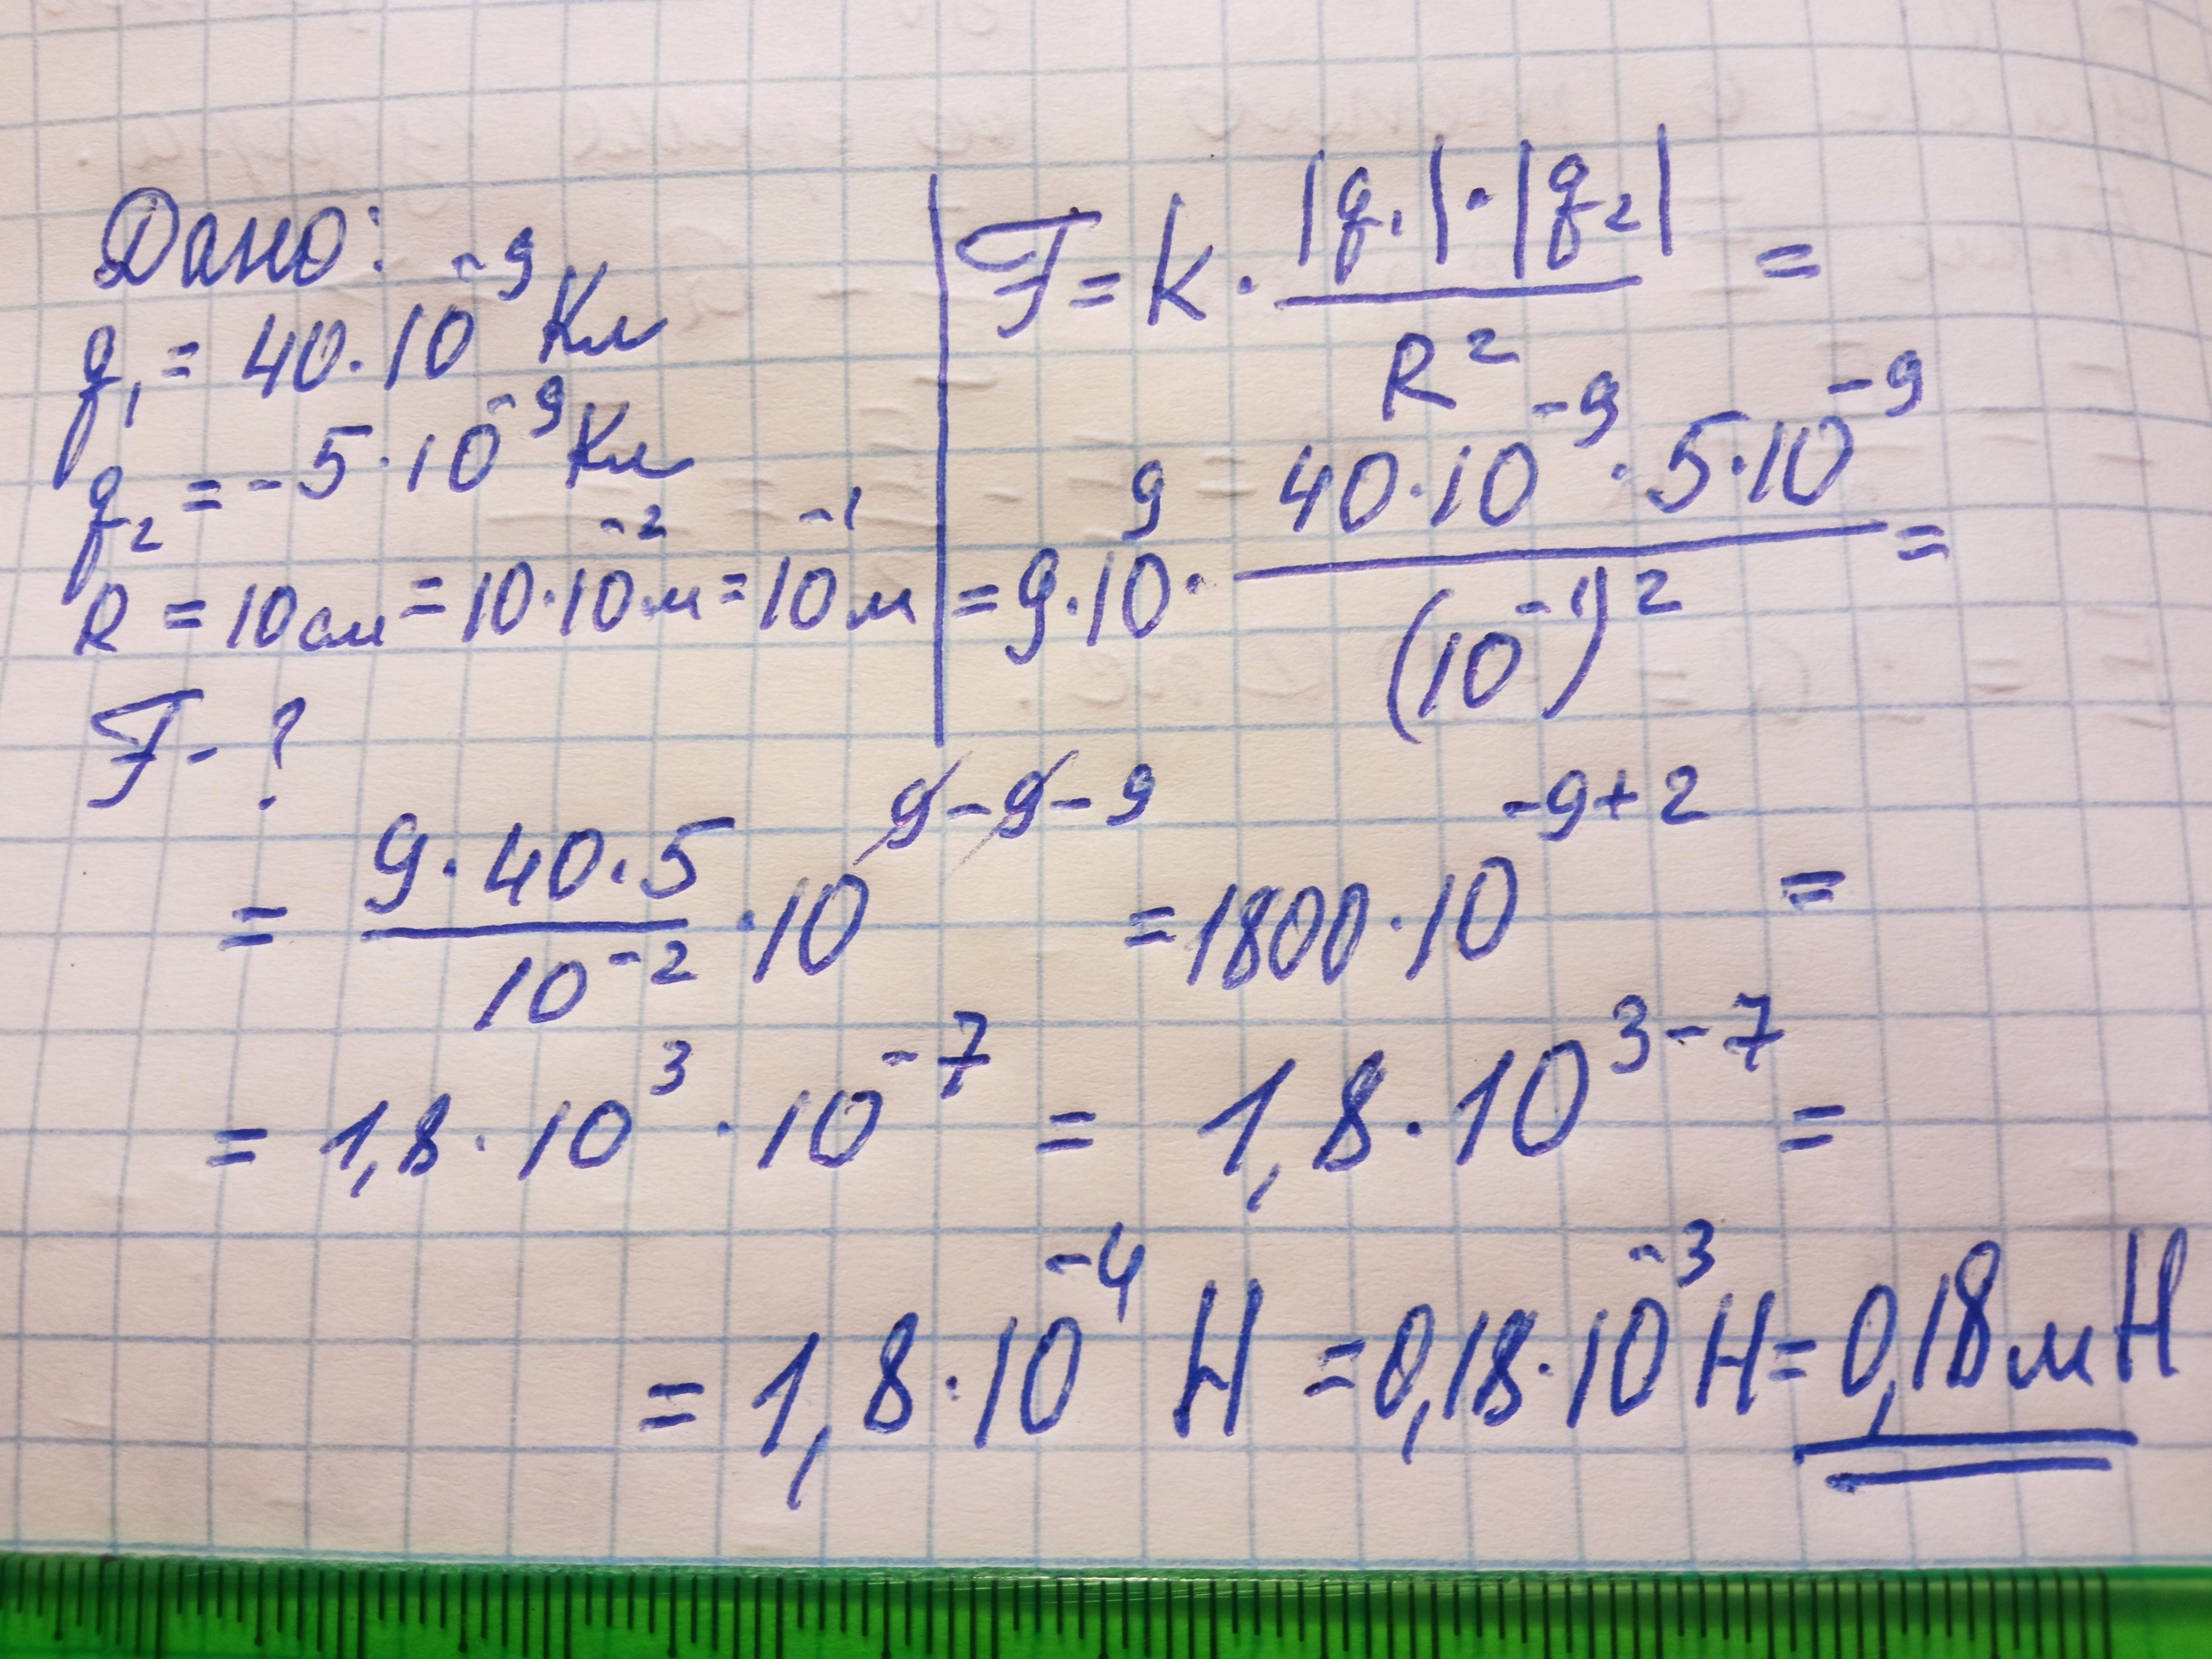 Дано:
q₁ = 40·10⁻⁹ Кл
q₂ = -5·10⁻⁹ Кл
R = 10см = 10·10⁻²м = 10⁻¹м
F - ?
F = k · |q₁|·|q₂| / R² =
= 9·10⁹ · 40·10⁻⁹ · 5·10⁻⁹ / (10⁻¹)² =
= 9·40·5 / 10⁻² · 10⁹⁻⁹⁻⁹ = 1800·10⁻⁹⁺² =
= 1,8·10³ · 10⁻⁷ = 1,8·10³⁻⁷ =
= 1,8·10⁻⁴ Н = 0,18·10⁻³ Н = 0,18мН